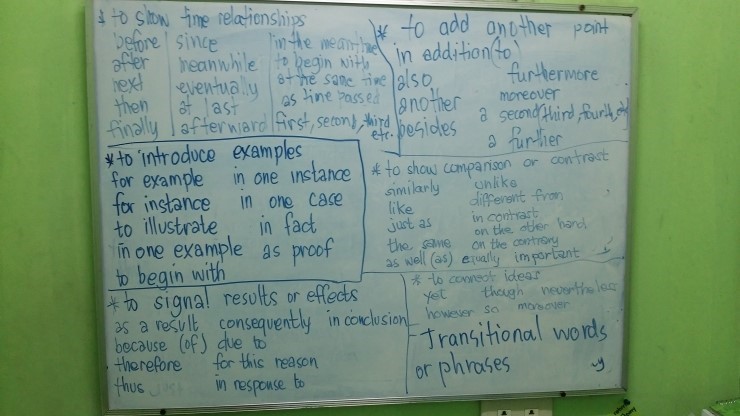 * to show time relationships
before since in the meantime
after meanwhile to begin with
next eventually at the same time
then at last as time passed
finally afterward first, second, third etc.
* to add another point
in addition (to)
also furthermore
another moreover
besides a second, third, fourth, etc
a further
* to introduce examples
for example in one instance
for instance in one case
to illustrate in fact
in one example as proof
to begin with
* to show comparison or contrast
similarly unlike
like different from
just as in contrast
the same on the other hand
on the contrary
as well (as) equally important
* to signal results or effects
as a result consequently in conclusion
because (of) due to
therefore for this reason
thus in response to
* to connect ideas
yet though nevertheless
however so moreover
Transitional words
or phrases